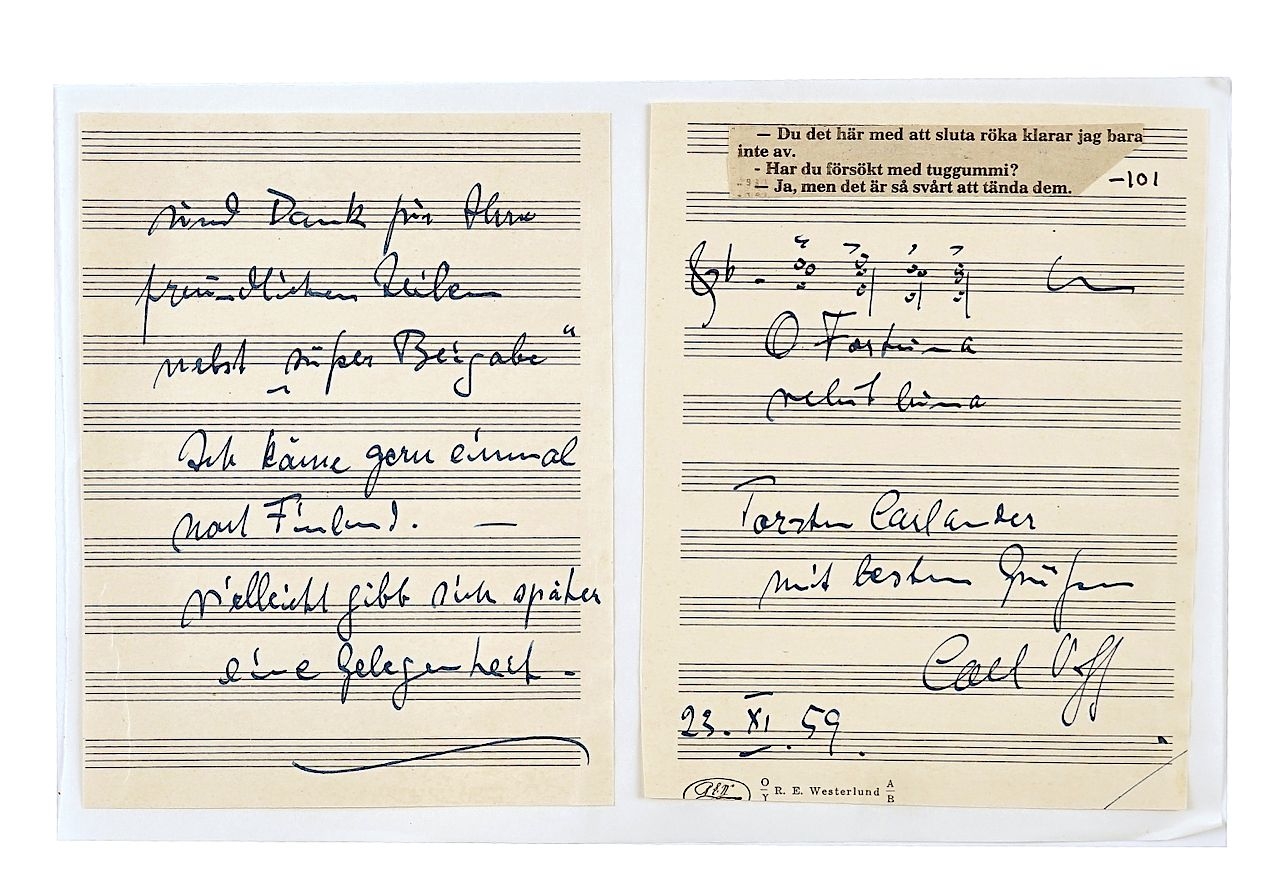 und Dank für Ihre
freundlichen Zeilen
nebst „süßer Beigabe“
Ich käme gern einmal
nach Finland. —
vielleicht gibt sich später
eine Gelegenheit.
— Du det här med att sluta röka klarar jag bara
inte av.
- Har du försökt med tuggummi?
— Ja, men det är så svårt att tända dem.
–101
O Fortuna
velut luna
Torsten Carlander
mit besten Grüßen
Carl Orff
23. XI. 59.
O/Y R. E. Westerlund A/B